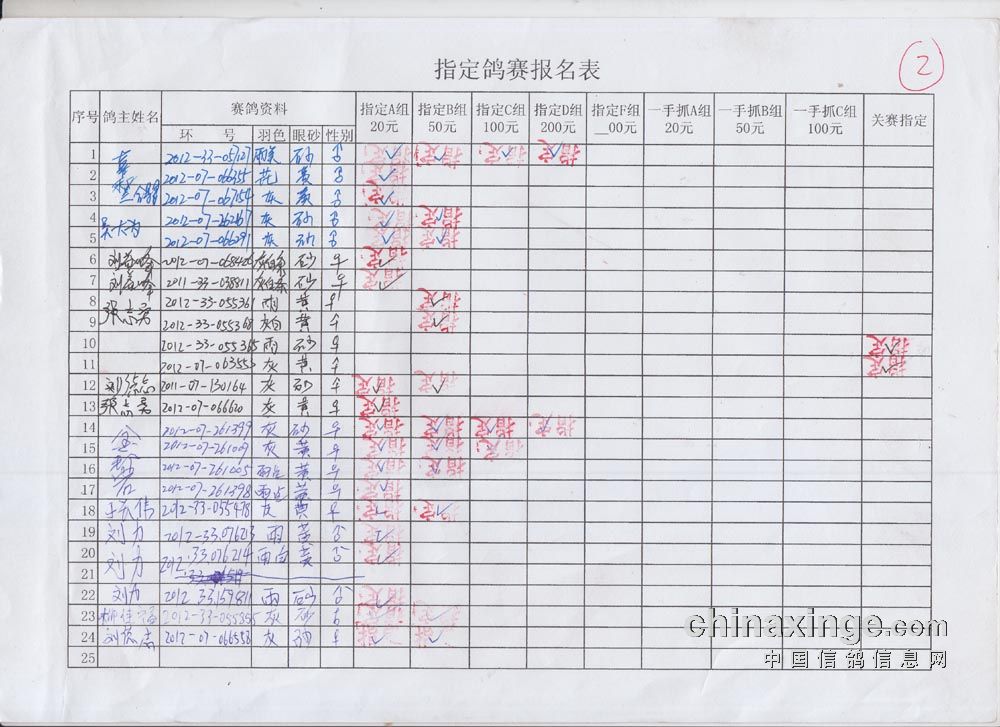 指定鸽赛报名表
2
序号 鸽主姓名 赛鸽资料 指定A组 20元 指定B组 50元 指定C组 100元 指定D组 200元 指定F组 __00元 一手抓A组 20元 一手抓B组 50元 一手抓C组 100元 关赛指定
环 号 羽色 眼砂 性别
1 砂 指定 指定 指定 指定
2 2012-07-066355 黄 指定
3 2012-07-067154 灰 黄 指定
4 2012-07-262467 灰 砂 指定 指定
5 2012-07-066291 灰 砂 指定 指定
6 2012-07-068420 砂 指定
7 2011-33-038811 砂 指定
8 2012-33-055361 雨 黄 指定
9 张志君 2012-33-055368 灰白 黄 指定
10 2012-33-055365 雨 砂 指定
11 2012-07-063553 灰 黄 指定
12 刘德志 2011-07-130164 灰 砂 指定 指定
13 张志君 2012-07-066620 灰 黄 指定
14 2012-07-261399 灰 砂 指定 指定 指定 指定
15 2012-07-261009 灰 黄 指定 指定 指定
16 2012-07-261005 雨点 黄 指定 指定
17 2012-07-261398 雨点 黄 指定
18 2012-33-055478 灰 黄 指定 指定
19 刘力 2012-33.076213 雨 黄 指定
20 刘力 2012.33.076214 雨白 黄 指定
21
22 刘力 2012.33.159811 雨 砂 指定
23 2012-33-055855 灰 砂 指定 指定
24 2012-07-066553 灰 砂 指定 指定
25
chinaxinge.com
中国信鸽信息网